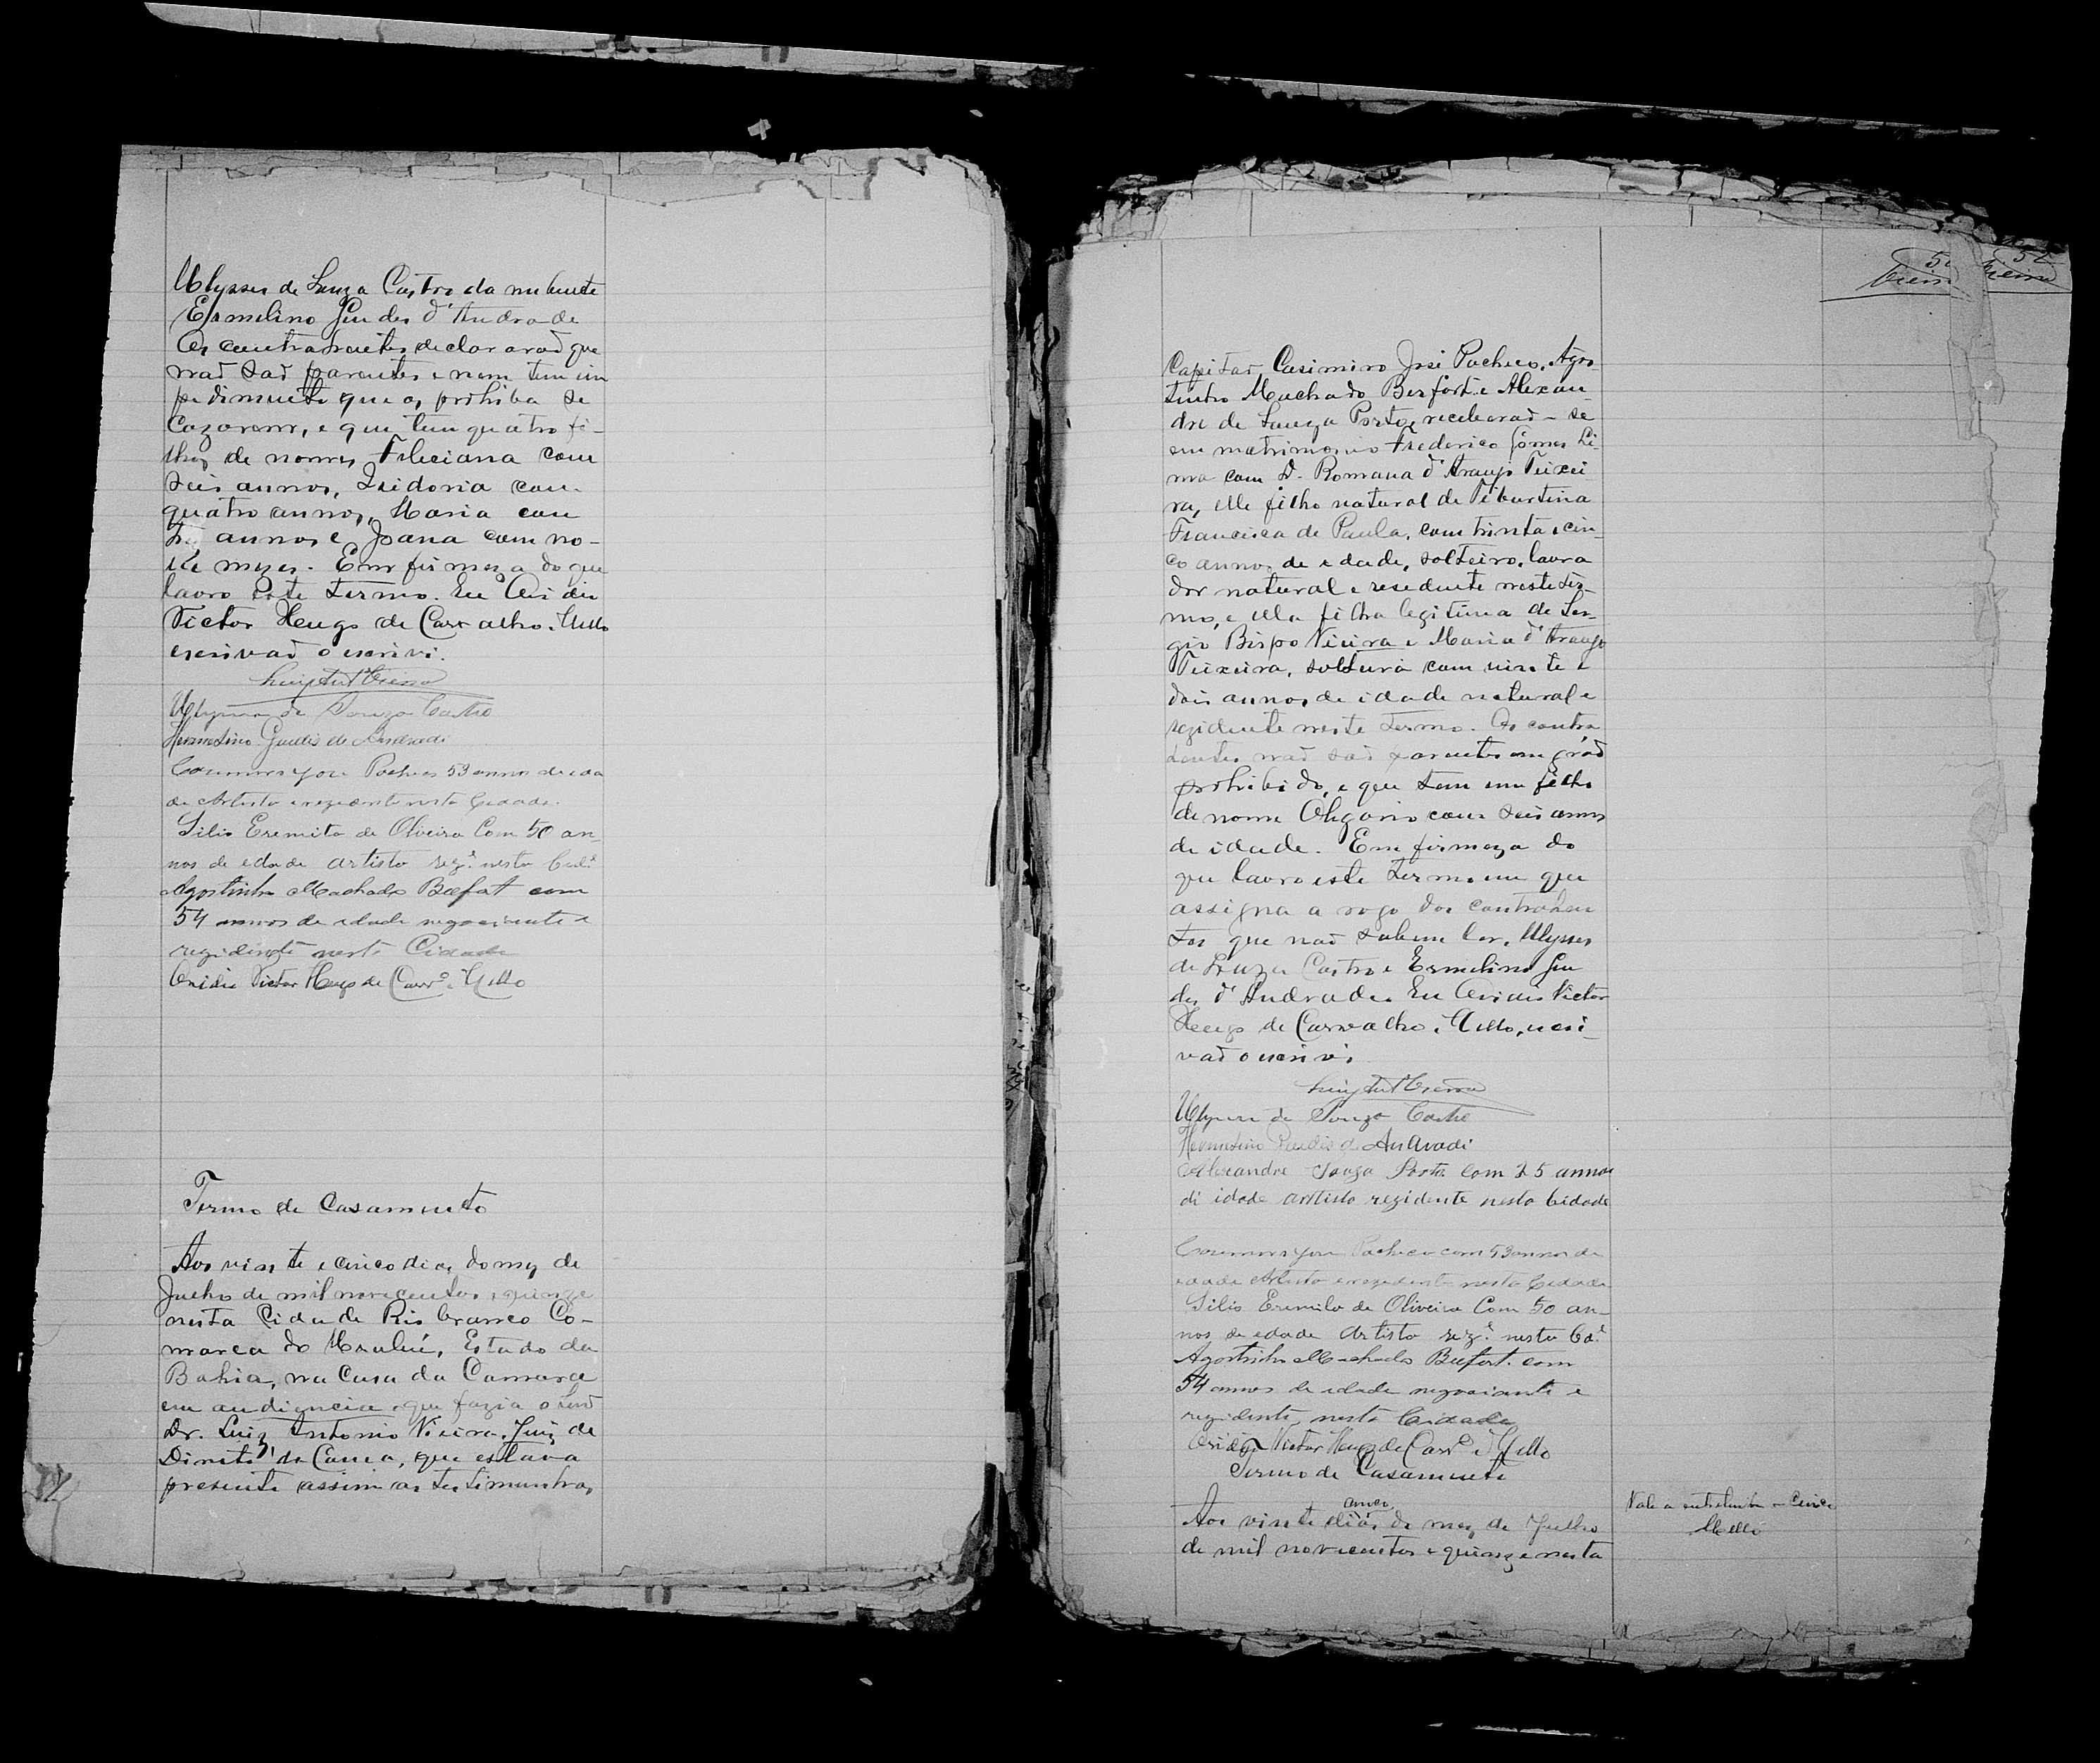 Ulysses de Souza Castro da nubente
Ermelino Guedes d'Andrade
Os contrahentes declararaõ que
naõ saõ parentes e nem tem im
pedimento que os prohiba de
Cazarem, e que tem quatro fi-
lhos de nomes Feleciana com
seis annos, Izidoria com
quatro annos, Maria com
annos e Joana com no-
ve mezes. Em firmeza do que
lavro este termo. Eu Ovidio
Victor Hugo de Carvalho e Mello
escrivaõ o escrivi.
Luiz Antº Vieira
Ulysses de Souza Castro
Hermelino Guedis de Andradi
Casimiro Jose Pacheco 53 annos de ida
de Artista e rezidente nesta Cidade.
Silio Eremita de Oliveira Com 50 an-
nos de edade artista rezᵉ nesta Cidᵉ
Agostinho Machado Beefort com
54 annos de edade negociante e
rezidente nesta Cidade
Ovidio Victor Hugo de Carvº e Mello
Termo de Casamento
Aos vinte e cinco dias do mez de
Julho de mil novecentos e quinze
nesta Cidade Rio branco Co-
marca do Urubú, Estado da
Bahia, na Casa da Camara
em audiencia que fazia o
Dr. Luiz Antonio Vieira, Juiz de
Direito da Comca, que estava
presente assim as testimunhas
Capitaõ Casimiro José Pacheco, Agos-
tinho Machado Berfort e Alexan-
dre de Souza Porto, receberaõ-se
em matrimonio Frederico Gomes Li-
ma com D. Romana d'Araujo Teixei
ra, elle filho natural de Tiburtina
Francisca de Paula, com trinta e cin-
co annos de edade, solteiro, lavra
dor natural e residente neste ter-
mo, e ella filha legitima de Ser-
gio Bispo Vieira e Maria d'Araujo
Teixeira, solteira com vinte e
dois annos de idade natural e
rezidente neste termo. Os contra
hentes naõ saõ parentes em gráo
prohibido, e que tem um filho
de nome Olegario com seis annos
de idade. Em firmeza do
que lavro este termo em que
assigna a rogo dos contrahen
tes que naõ sabem ler, Ulysses
de Souza Castro e Ermelino Gue
des d'Andrade. Eu Ovidio Victor
Hugo de Carvalho e Mello, escri-
vaõ o escrivi
Luiz Antº Vieira
Ulysses de Souza Castro
Hermelino Guedis de Andradi
Alexandre Souza Porto Com 25 annos
di idade artista rezidente nesta Cidade
Casimiro Jose Pacheco com 53 annos de
idade Artista e rezidente nesta Cidade
Silio Eremita de Oliveira Com 50 an-
nos de edade Artista rezᵉ nesta Cdᵉ
Agostinho Machado Beefort com
54 annos de edade negociante e
rezidente nesta Cidade
Ovidio Victor Hugo de Carvº e Mello
Termo de Casamento
Aos vinte dias do mez de Julho
de mil novecentos e quinze nesta
Vale a entrelinha - Cinco
Mello